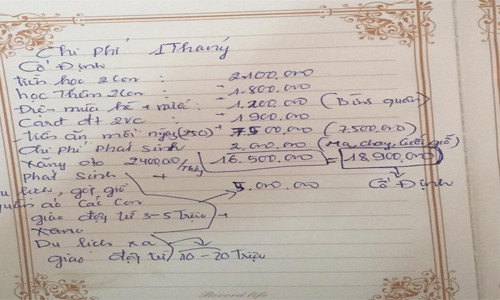 Chi phí 1 Tháng
Cố Định
tiền học 2 con : 2.100.000
học Thêm 2 con : - 1.800.000
Điện nước hè + : - 1.200.000 (Bình quân)
Card đt 2VC : - 1.900.000
tiền ăn mỗi ngày (250) + 7.500.000 (7.500.000)
chi phí phát sinh 2.000.000 (Ma chay, cưới giỗ)
xăng oto 2400.000/Tháng 16.500.000 = 18.900.000
phát Sinh + Cố Định
Du lịch, 5.000.000
quần áo Các Con
giao động từ 3-5 Triệu +
Du lịch xa
giao động từ 10-20 Triệu
Record life